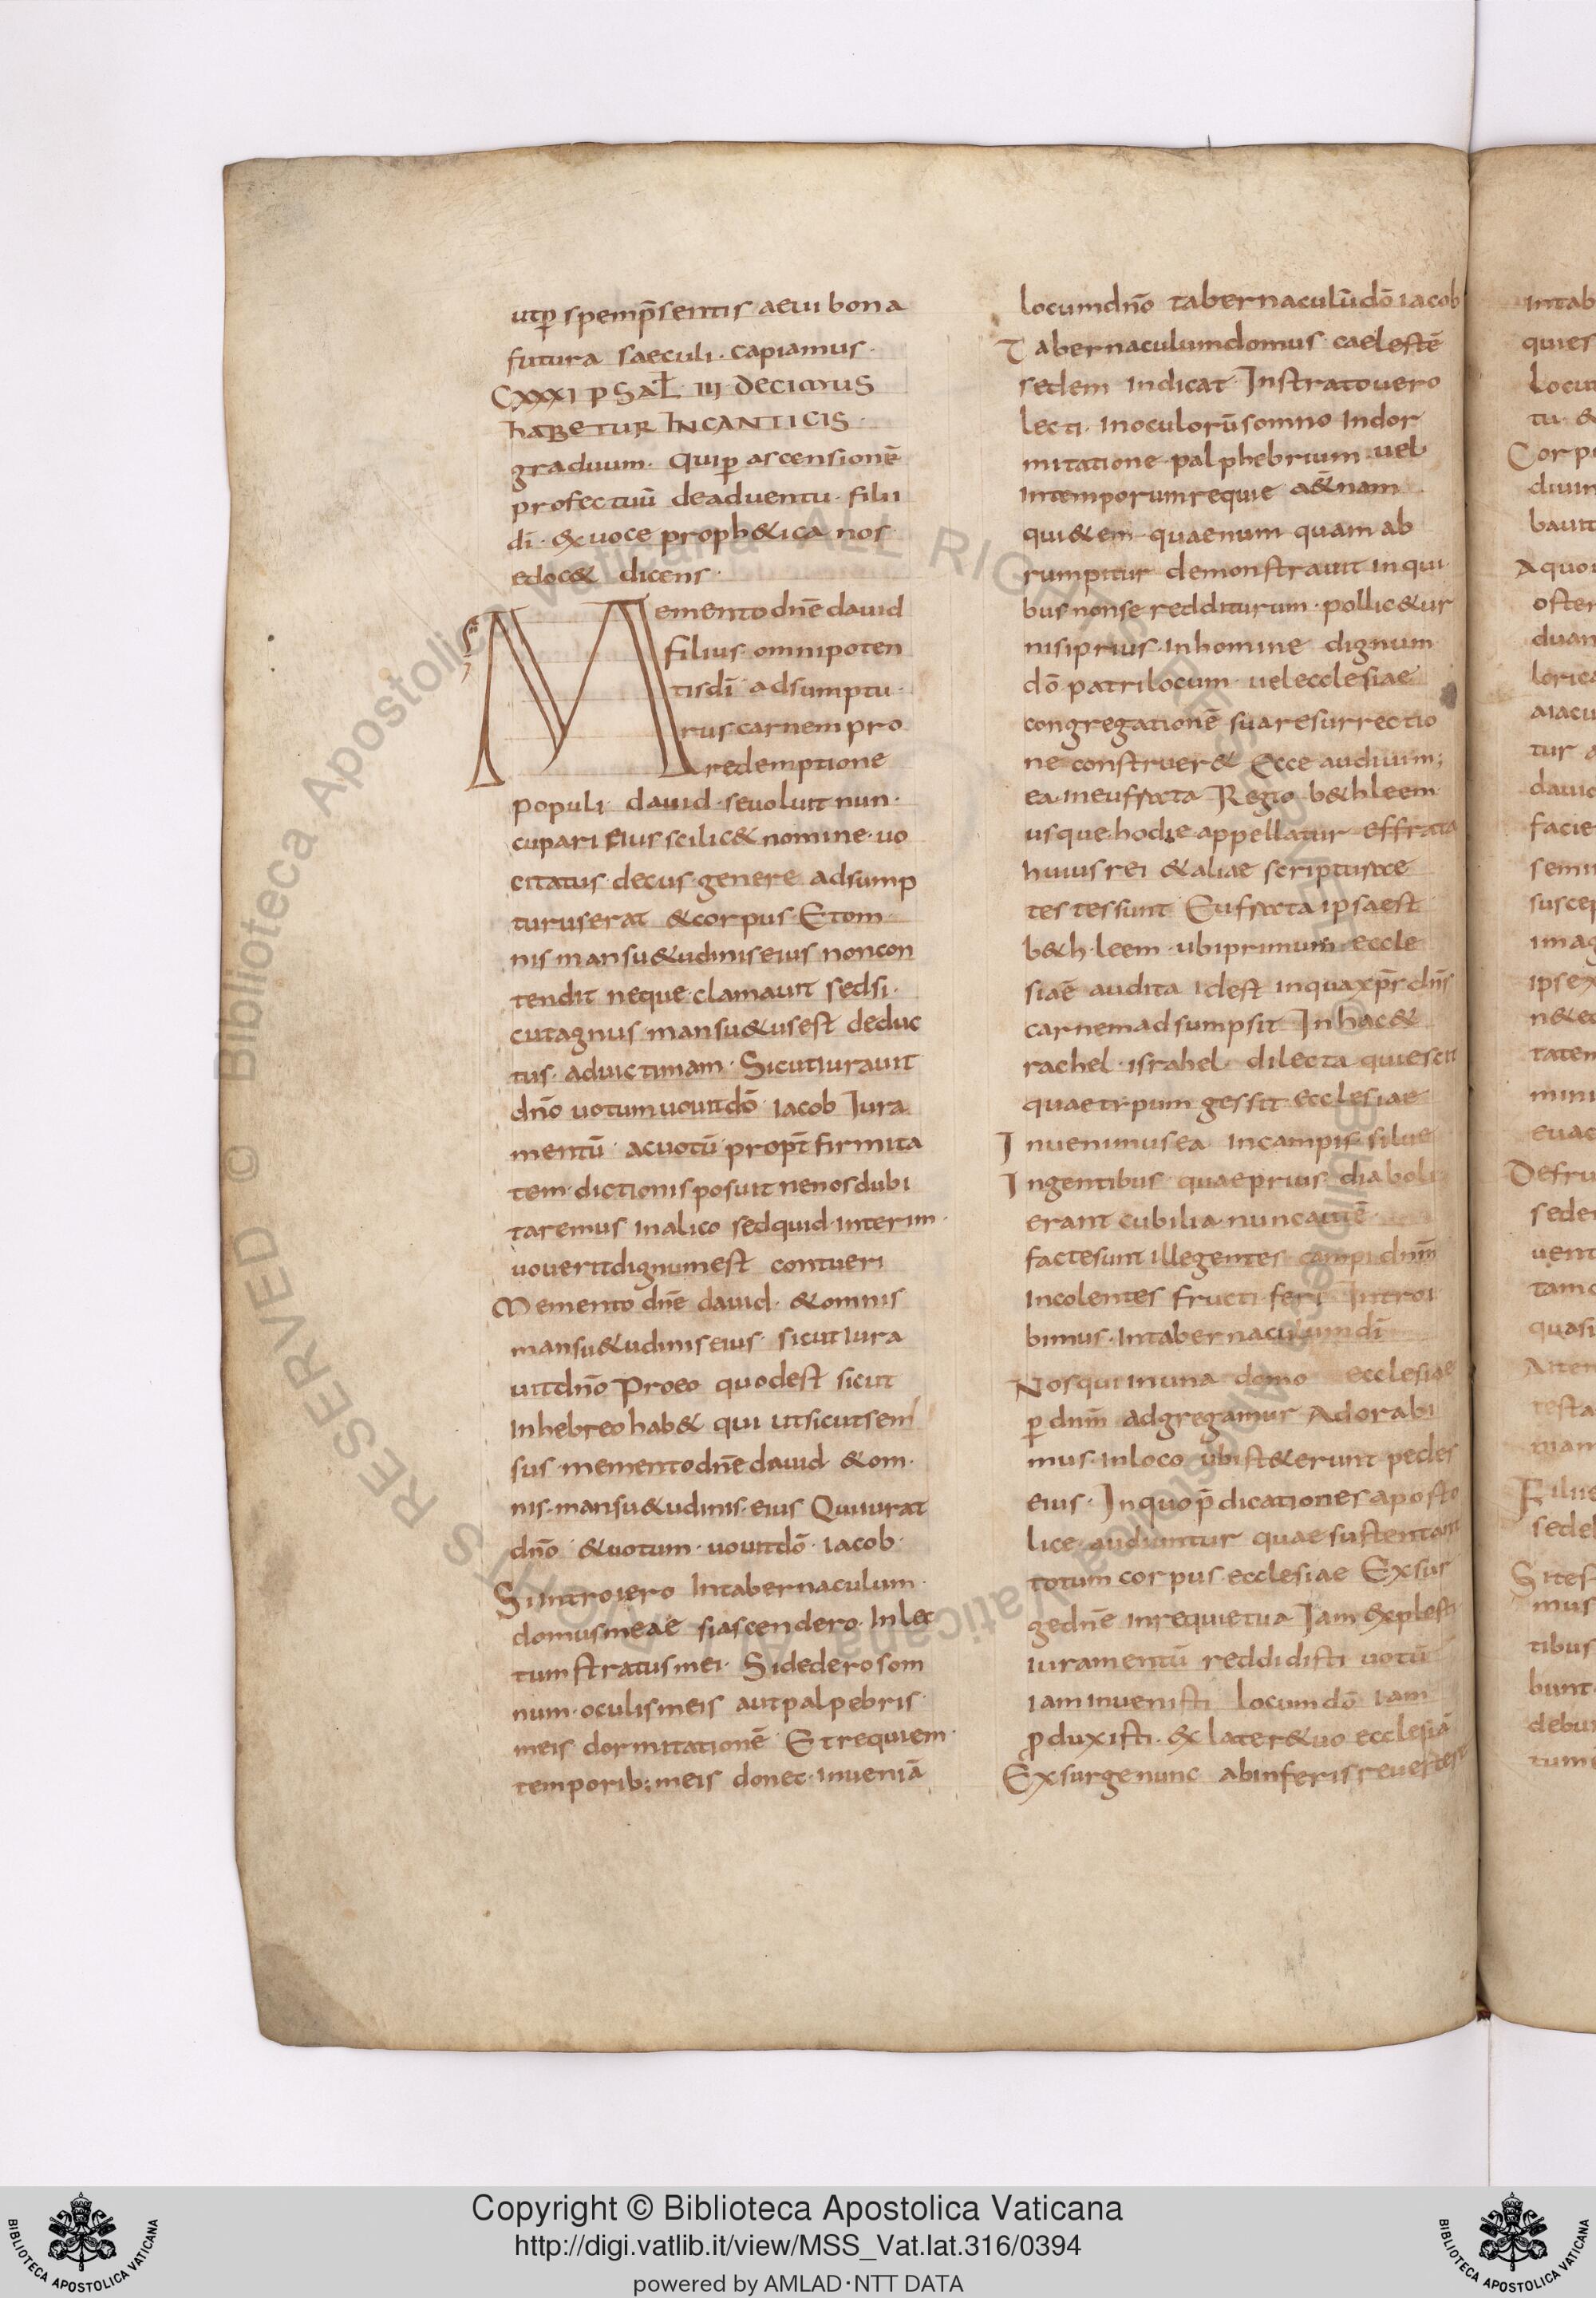 utꝑ spemp̄sentis aeui bona
futura saeculi· capiamus·
CXXXI PSAL̄ III DECIMUS
HABETUR IN CANTICIS·
graduum· quiꝑ ascensionē
profectuū deaduentu· filii
dī· exuoce proph&ica nos
edoc& dicens·
Memento dnē dauid
filius· omnipoten
tisdī adsumptu·
rus carnem pro
redemptione
populi· dauid· seuoluit nun·
cupari eius scilic& nomine· uo
citatus· decus· genere adsump
turus erat &corpus· Etom
nis mansu&udinis eius noncon
tendit neque· clamauit sedsi·
cutagnus· mansu&usest deduc
tus· aduictimam· Sicutiurauit
dnō uotum uouitdō iacob Iura
mentū acuotū propt̄ firmita
tem· dictionis posuit nenos dubi
taremus· inalico sedquid· interim·
uouerit dignumest contueri
Memento dnē dauid· &omnis
mansu&udinis eius· sicut iura
uitdnō Proeo quodest sicut
Inhebreo hab& qui utsicutsem
sus· memento dnē dauid &om·
nis· mansu&udinis· eius Quiiurat
dnō &uotum· uouitdō· iacob·
Siintroiero Intabernaculum·
domus meae siascendero· Inlec
tum stratus mei· Sidedero som
num· oculis meis autpalpebris·
meis dormitationē Et requiem·
temporib; meis donec· inueniā
locumdnō tabernaculūdō iacob
Tabernaculum domus caelestē
sedem indicat· Instratouero
lecti· inoculorū somno Indor
mitatione· palphebrium uel
intemporum requie a&nam
qui&em· quaenum quam ab
rumpitur demonstrauit inqui
bus nonse redditurum· pollic&ur
nisiprius· inhomine dignum
dō patrilocum· uelecclesiae
congregationē sua resurrectio
ne construer& Ecce audiuim;
ea· ineuffrata Regio b&hleem
usque hodie appellatur effrata
huius rei &aliae scripturae
testes sunt Euffrata ipsaest
b&h·leem· ubiprimum eccle
siaē audita idest inquaxp̄s dn̄s
carnem adsumpsit In hac&
rachel· israhel· dilecta quiescit
quae typum gessit ecclesiae
Inuenimus ea incampis siluae
Ingentibus· quaeprius diaboli·
erant cubilia nuncautē
factesunt illegentes campi dnm̄
incolentes fructi·feri· Introi
bimus· intabernaculum dī
Nosquiinuna domo ecclesiae
ꝑ dnm̄ adgregamur Adorabi
mus· inloco ubist&erunt pedes
eius· Inquo p̄dicationes aposto
lice· audiuntur quae sustentant
totum corpus ecclesiae Exsur
gednē inrequietua Iam explesti
iuramentū reddidisti uotū
iaminuenisti locumdō iam
ꝓduxisti· exlater&uo ecclesiā
Exsurge nunc abinferis
Intab
quies
Locum
tu· &
diuin
bauit
Aquo
osten
duam
loric
aiacu
tur a
dauid
facie
semi
suscep
imag
ipsex
n&ed
taten
mini
euac
Defru
seder
uent
tamo
quasi
testa
mam
Filiie
sedeb
mus
tibus
bunt
debu
tume
© Biblioteca Apostolica Vaticana ALL RIGHTS RESERVED
Copyright © Biblioteca Apostolica Vaticana
http://digi.vatlib.it/view/MSS_Vat.lat.316/0394
powered by AMLAD·NTT DATA
BIBLIOTECA APOSTOLICA VATICANA
BIBLIOTECA APOSTOLICA VATICANA